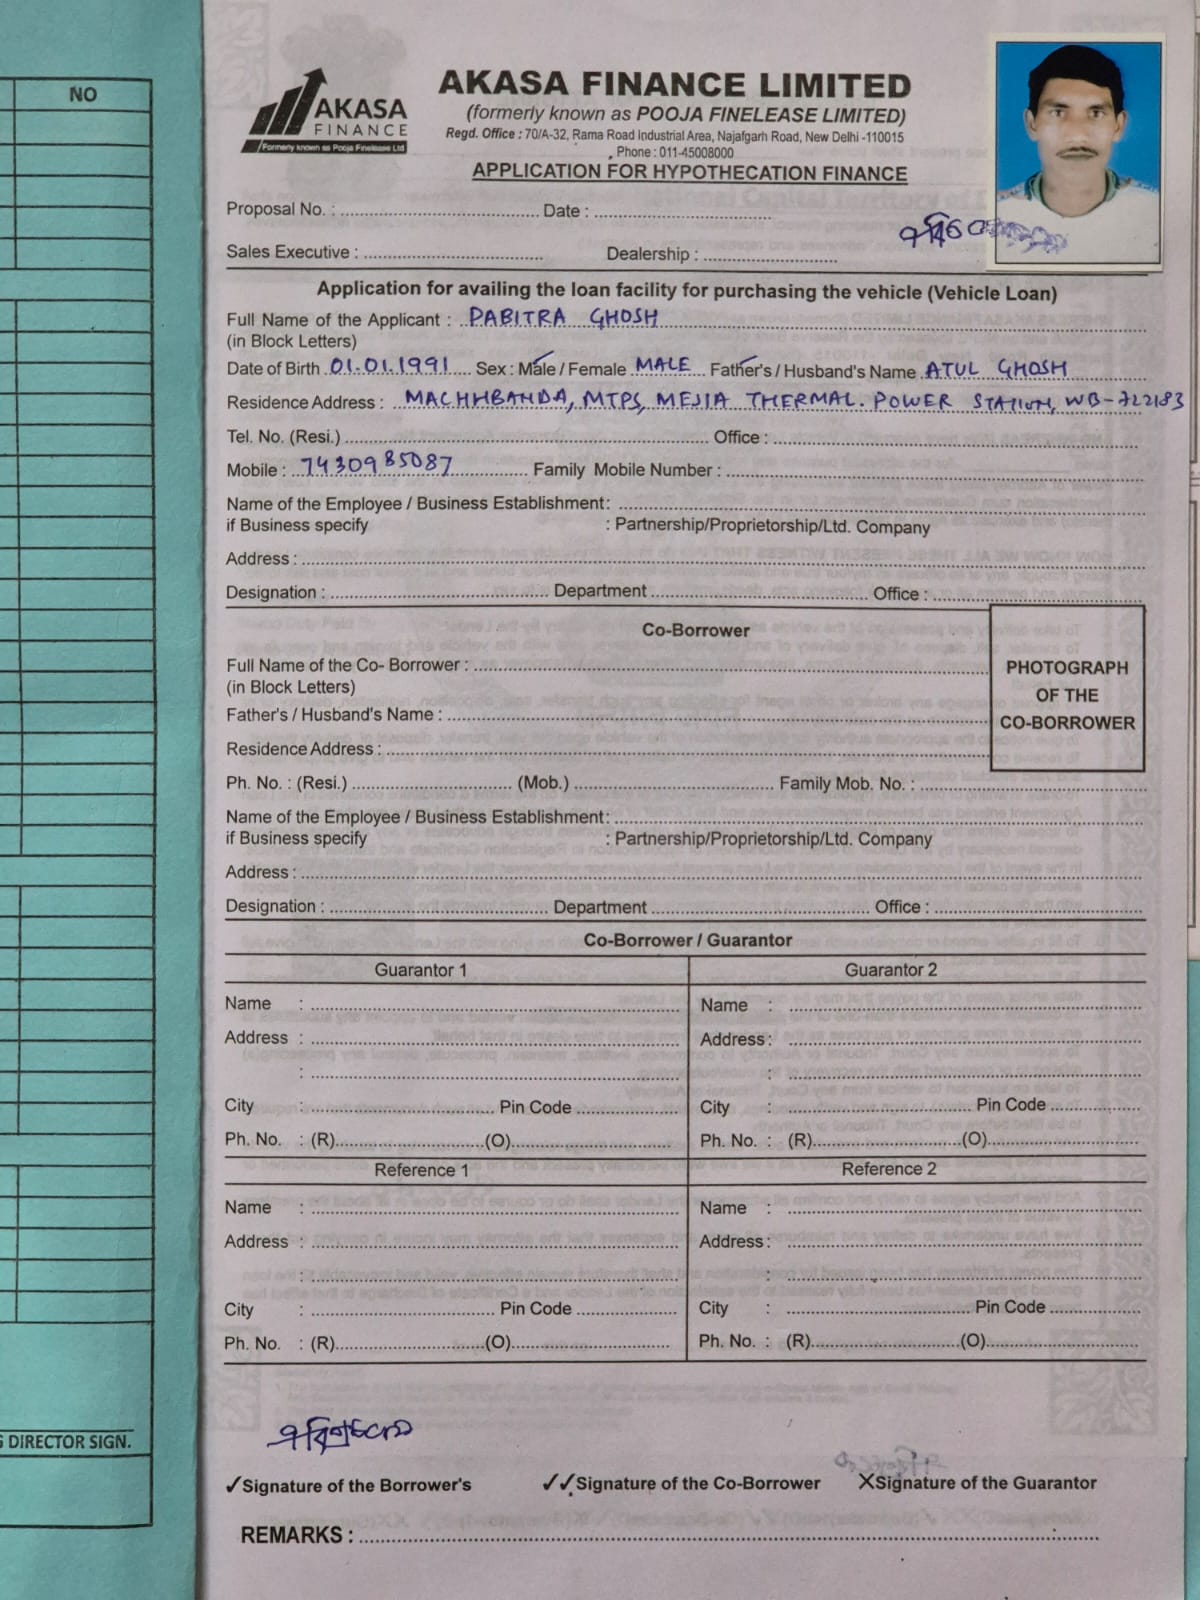 NO
AKASA
FINANCE
Formerly known as Pooja Finelease Ltd
AKASA FINANCE LIMITED
(formerly known as POOJA FINELEASE LIMITED)
Regd. Office : 70/A-32, Rama Road Industrial Area, Najafgarh Road, New Delhi -110015
Phone : 011-45008000
APPLICATION FOR HYPOTHECATION FINANCE
Proposal No. : Date :
Sales Executive : Dealership :
Application for availing the loan facility for purchasing the vehicle (Vehicle Loan)
Full Name of the Applicant : PABITRA GHOSH
(in Block Letters)
Date of Birth 01.01.1991 Sex : Male / Female MALE Father's / Husband's Name ATUL GHOSH
Residence Address : MACHHBANDA, MTPS, MEJIA THERMAL. POWER STATION, WB-722183
Tel. No. (Resi.) Office :
Mobile : 7430985087 Family Mobile Number :
Name of the Employee / Business Establishment:
if Business specify : Partnership/Proprietorship/Ltd. Company
Address :
Designation : Department Office :
Co-Borrower
Full Name of the Co- Borrower :
(in Block Letters)
Father's / Husband's Name :
Residence Address :
PHOTOGRAPH
OF THE
CO-BORROWER
Ph. No. : (Resi.) (Mob.) Family Mob. No. :
Name of the Employee / Business Establishment:
if Business specify : Partnership/Proprietorship/Ltd. Company
Address :
Designation : Department Office :
Co-Borrower / Guarantor
Guarantor 1 Guarantor 2
Name : Name :
Address : Address :
: :
City : Pin Code City : Pin Code
Ph. No. : (R) (O) Ph. No. : (R) (O)
Reference 1 Reference 2
Name : Name :
Address : Address :
: :
City : Pin Code City : Pin Code
Ph. No. : (R) (O) Ph. No. : (R) (O)
DIRECTOR SIGN.
✓Signature of the Borrower's ✓✓Signature of the Co-Borrower XSignature of the Guarantor
REMARKS :